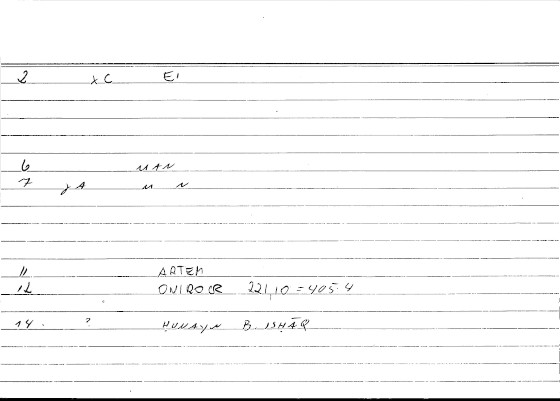 2 xC EI
6 MAN
7 yA M N
11 ARTEM
12 ONIROCR 221,10 = 405.4
14. ? ḤUNAYN B. ISḤĀQ